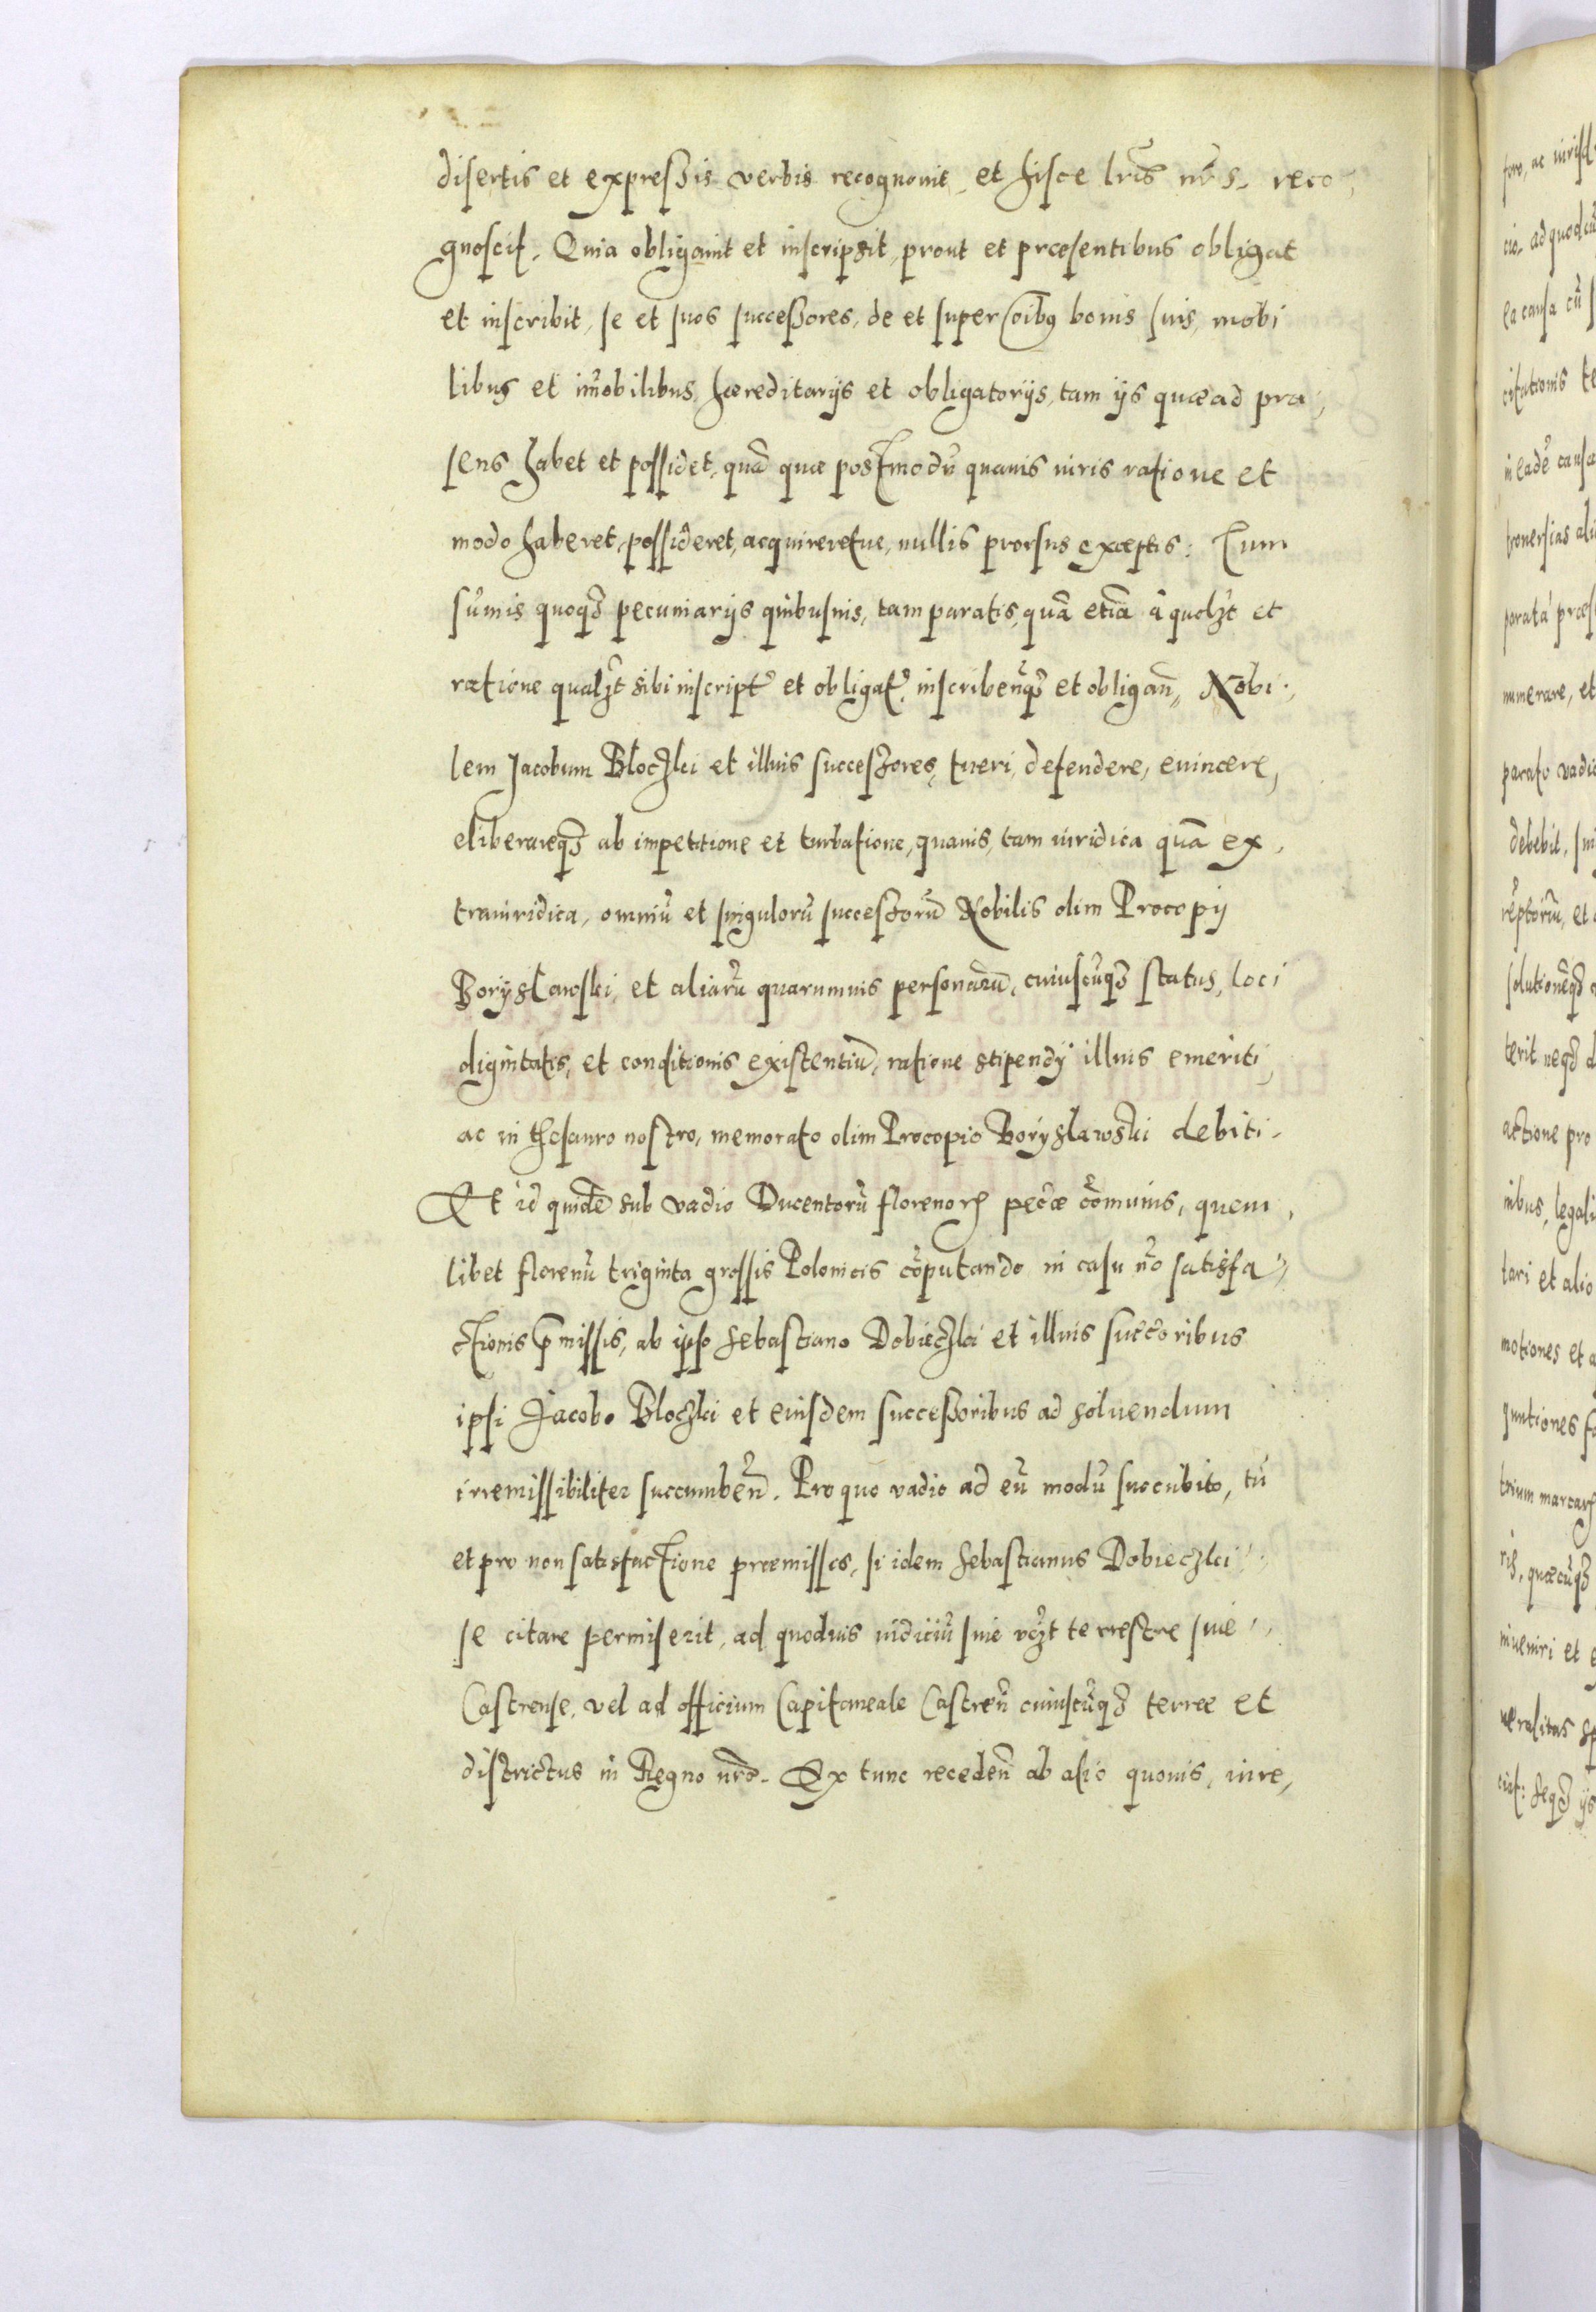 disertis et expressis verbis recognovit, et hisce lris nris reco,
gnoscit. Quia obligavit et inscripsit, prout et præsentibus obligat
et inscribit, se et suos successores, de et super oibus bonis suis, mobi
libus et imobilibus hæreditarijs et obligatorijs, tam ijs quæ ad præ,
sens habet et possidet, quã quæ postmodũ quavis iuris ratione et
modo haberet, possideret, acquireretue, nullis prorsus exceptis: Tum
sũmis quoqȝ pecuniarijs quibusuis, tam paratis, quã etiã à quolȝt et
ratione qualȝt sibi inscript et obligat, inscribenqȝ et obligan, Nobi,
lem Jacobum Bloczki et illius successores, tueri, defendere, euincere,
eliberareqȝ ab impetitione et turbatione, quauis, tam iuridica quã ex,
traiuridica, omniũ et singulorũ successorũ Nobilis olim Procopij
Boryslawski, et aliarũ quarumuis personarũ, cuiuscũqȝ status, loci
dignitatis, et conditionis existentiũ, ratione stipendij illius emeriti,
ac in thesauro nostro, memorato olim Procopio Boryslawski debiti.
Et id quidẽ sub vadio Ducentorũ florenorꝝ pecæ cõmunis, quem,
libet florenũ triginta grossis Polonicis cõputando in casu nõ satisfa,
ctionis p̄missis, ab ipso Sebastiano Dobieczki et illius succoribus
ipsi Jacobo Bloczki et eiusdem successoribus ad soluendum
irremissibiliter succumben. Pro quo vadio ad eũ modũ succũbito, tũ
et pro non satisfactione præmissis, si idem Sebastianus Dobieczki
se citare permiserit, ad quoduis iudiciũ siue vȝt terrestre siue
Castrense, vel ad officium Capitaneale Castren cuiuscũqȝ terræ et
districtus in Regno nro. Ex tunc receden ab alio quouis, iure,